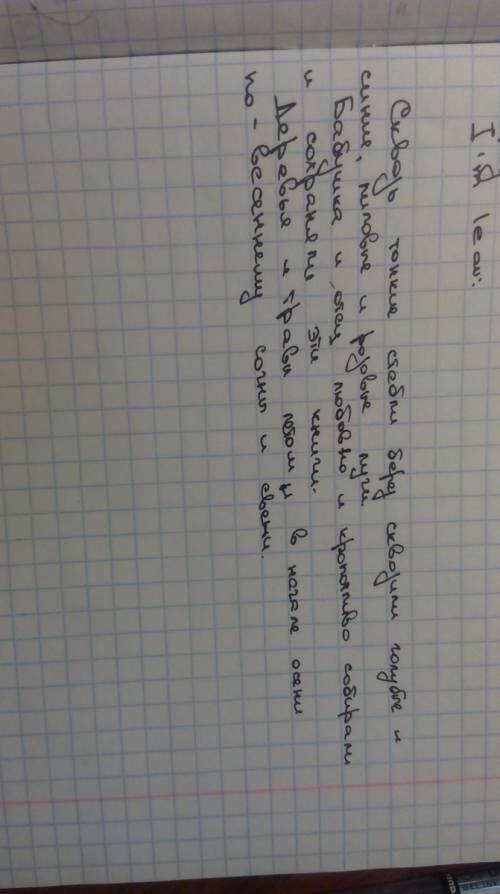 Сквозь тонкие стебли беру сквозили голубые и
синие, лиловые и розовые луги.
Бабушка и отец любовно и кропотливо собирали
и сохраняли эти книги.
Деревья и травы летом и в начале осени
по-весеннему сочны и свежи.